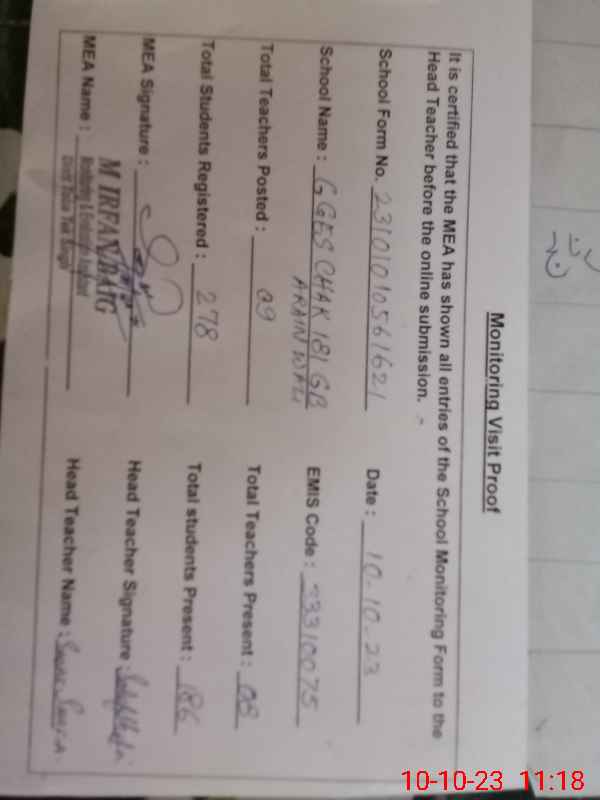 Monitoring Visit Proof
It is certified that the MEA has shown all entries of the School Monitoring Form to the
Head Teacher before the online submission.
School Form No. 23101010561621 Date : 10-10-23
School Name : GGES CHAK 181 GB EMIS Code : 33310075
ARAIN WALI
Total Teachers Posted : 09 Total Teachers Present : 08
Total Students Registered : 278 Total students Present : 186
MEA Signature : Head Teacher Signature :
MEA Name : Head Teacher Name :
M IRFAN BAIG
Monitoring & Evaluation Assistant
10-10-23 11:18